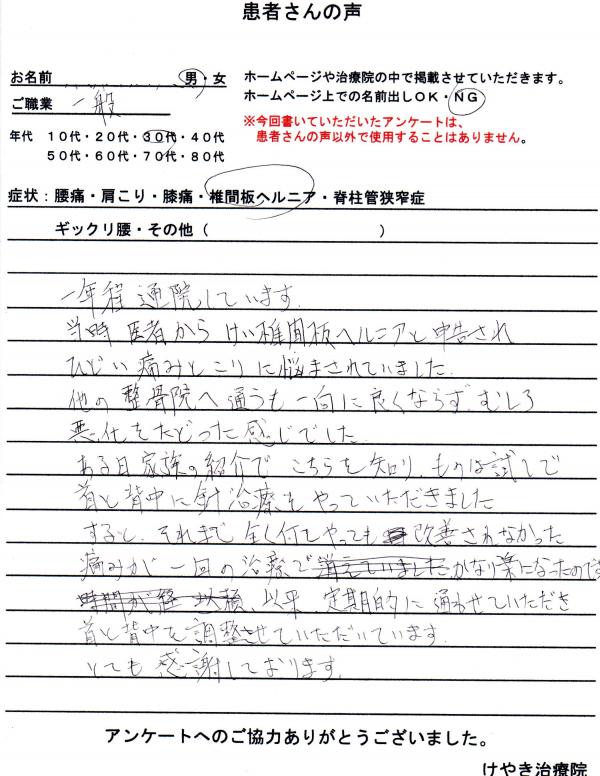 患者さんの声
お名前 男・女
ホームページや治療院の中で掲載させていただきます。
ご職業 一般
ホームページ上での名前出しOK・NG
※今回書いていただいたアンケートは、
患者さんの声以外で使用することはありません。
年代 10代・20代・30代・40代
50代・60代・70代・80代
症状：腰痛・肩こり・膝痛・椎間板ヘルニア・脊柱管狭窄症
ギックリ腰・その他（ ）
一年程 通院しています.
当時 医者から けい椎間板ヘルニアと申告され
ひどい痛みとこりに悩まされていました.
他の整骨院へ通うも一向に良くならず. むしろ
悪化をたどった感じでした.
ある日家族の紹介で こちらを知り ものは試しで
首と背中に針治療をやっていただきました
すると. それまで全く何をやっても 改善されなかった
痛みが一回の治療で 消えていました かなり楽になったのです
時間が経 以降 以来 定期的に通わせていただき
首と背中を調整させていただいています.
とても感謝しております.
アンケートへのご協力ありがとうございました。
けやき治療院